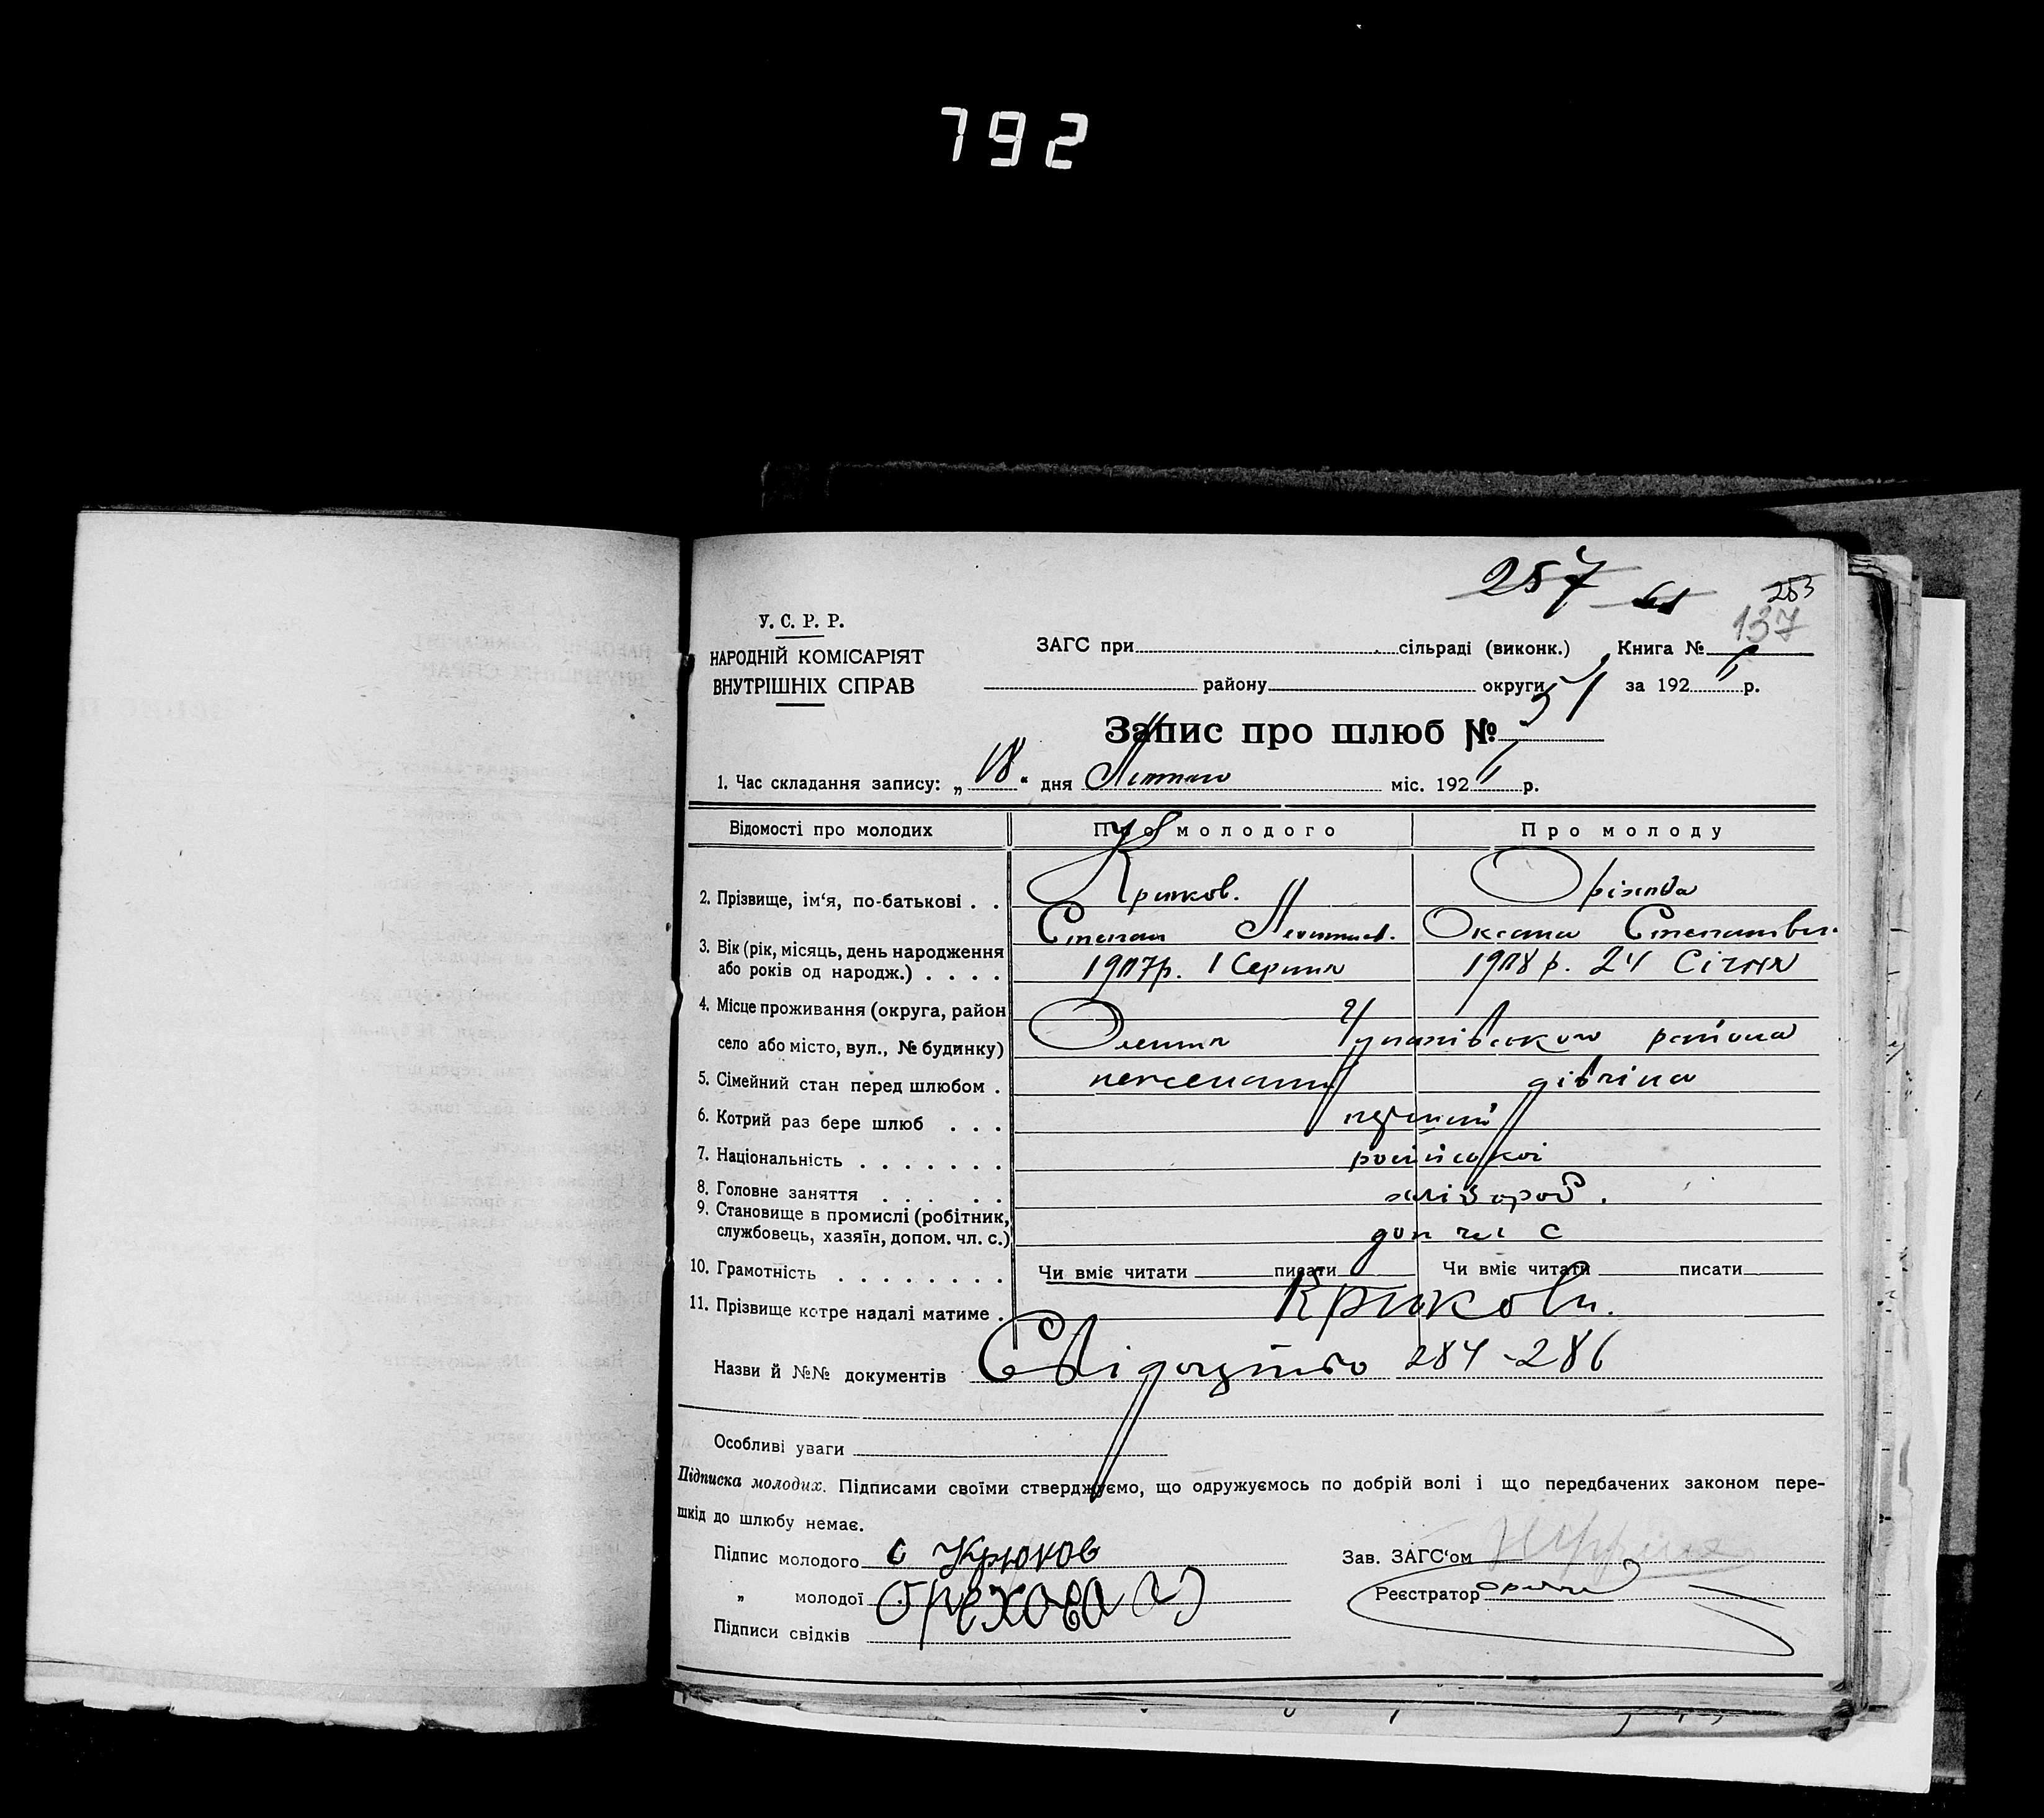 792
257
253
137
У. С. Р. Р.
НАРОДНІЙ КОМІСАРІЯТ
ВНУТРІШНІХ СПРАВ
ЗАГС при сільраді (виконк.) Книга №
району округи за 192 р.
Запис про шлюб № 51
1. Час складання запису: „18" дня Лютого міс. 192 р.
Відомості про молодих Про молодого Про молоду
2. Прізвище, ім'я, по-батькові . . Крюков.
Степан Оксана
3. Вік (рік, місяць, день народження
або років од народж.) . . . . 1907р. 1 Серпня 1908 р. 24 Січня
4. Місце проживання (округа, район
село або місто, вул., № будинку) району
5. Сімейний стан перед шлюбом . нежонатий дівчина
6. Котрий раз бере шлюб . . . перший
7. Національність . . . . . . . російської
8. Головне заняття . . . . . хлібороб.
9. Становище в промислі (робітник,
службовець, хазяїн, допом. чл. с.) доп чл с
10. Грамотність . . . . . . . . Чи вміє читати писати Чи вміє читати писати
11. Прізвище котре надалі матиме . Крюкови.
Назви й №№ документів Свідоцтво 284-286
Особливі уваги
Підписка молодих. Підписами своїми стверджуємо, що одружуємось по добрій волі і що передбачених законом пере-
шкід до шлюбу немає.
Підпис молодого С Крюков Зав. ЗАГС'ом
„ молодої Орехова Реєстратор
Підписи свідків